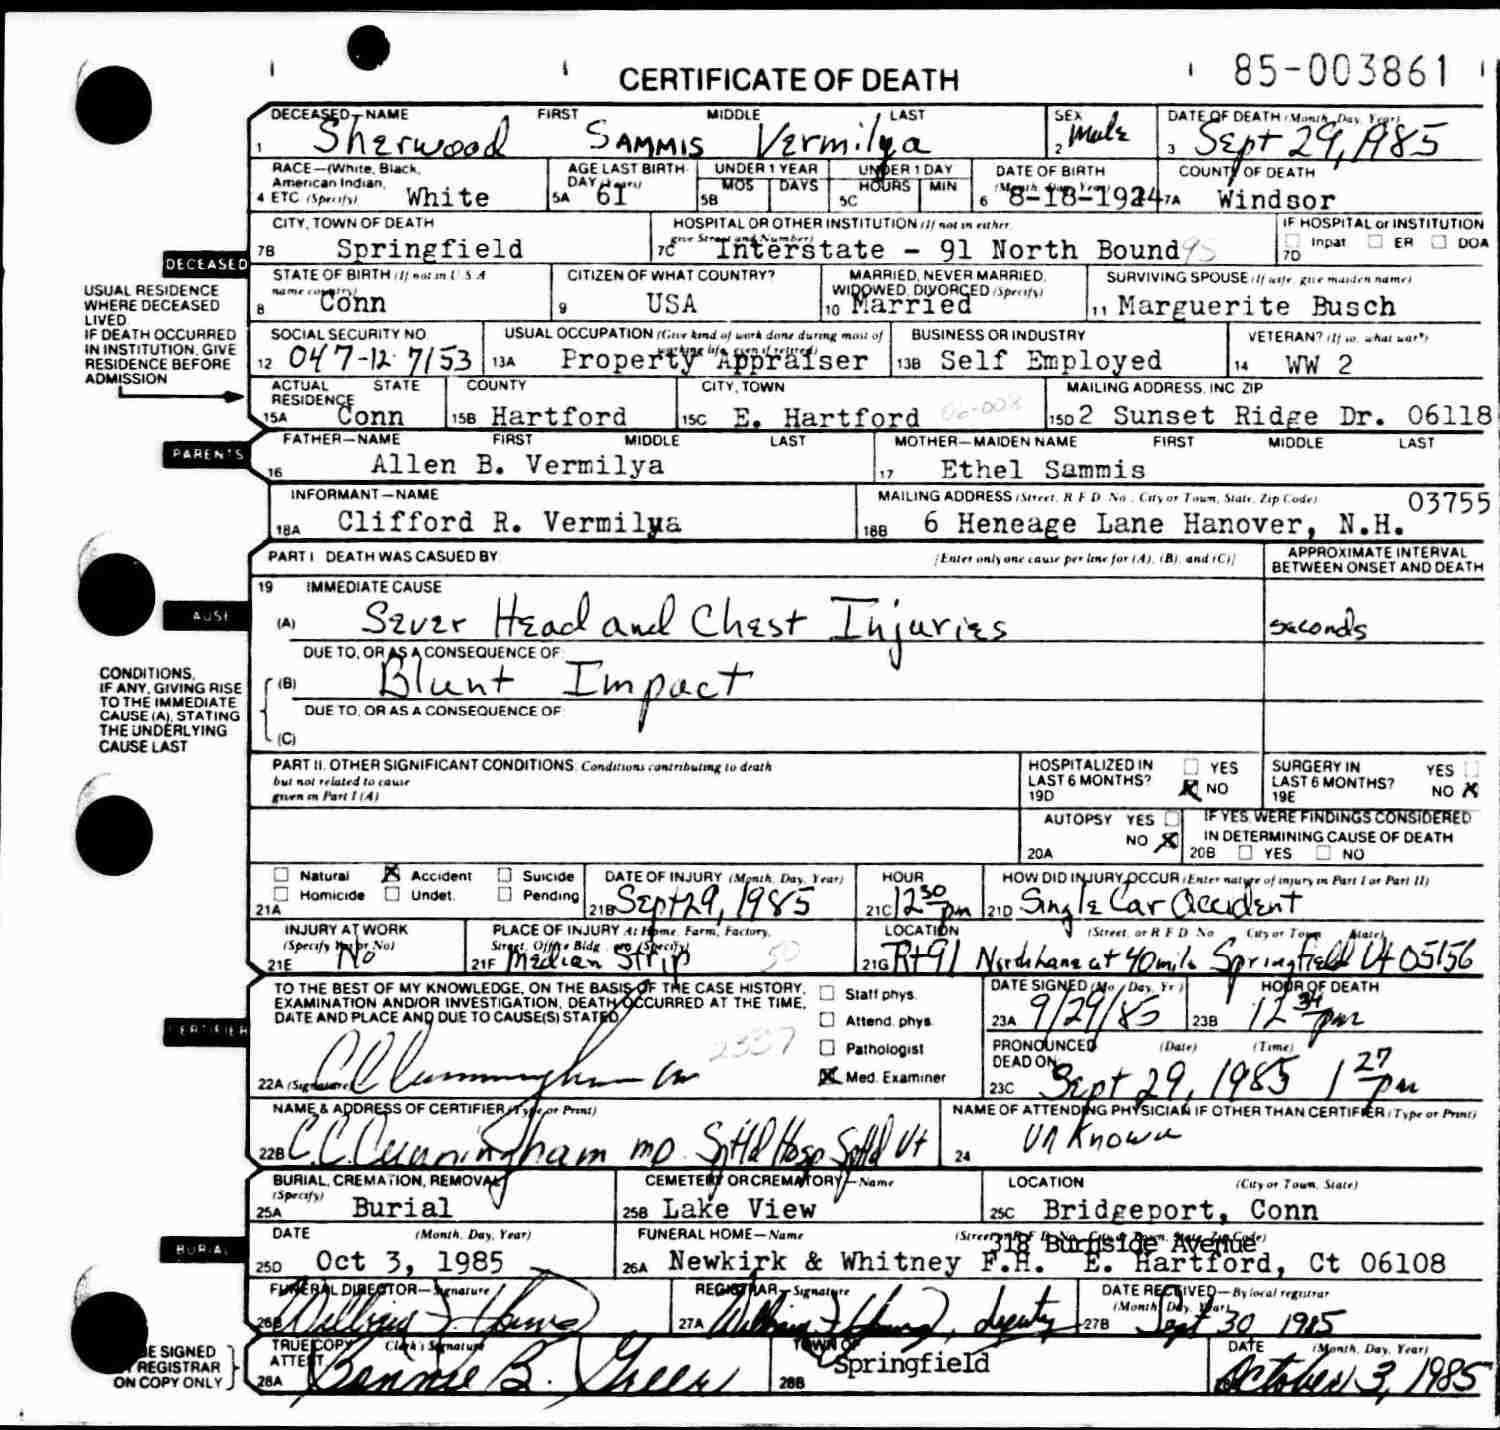 85-003861
CERTIFICATE OF DEATH
DECEASED—NAME FIRST MIDDLE LAST
1 Sherwood Sammis Vermilya
SEX
2 Male
DATE OF DEATH (Month, Day, Year)
3 Sept 29, 1985
RACE—(White, Black, American Indian,
4 ETC. (Specify) White
AGE LAST BIRTH-
DAY (Years)
5A 61
UNDER 1 YEAR
MOS DAYS
5B
UNDER 1 DAY
HOURS MIN
5C
DATE OF BIRTH
(Month, Day, Year)
6 8-18-1924
COUNTY OF DEATH
7A Windsor
CITY, TOWN OF DEATH
7B Springfield
HOSPITAL OR OTHER INSTITUTION (If not in either
give Street and Number)
7C Interstate - 91 North Bound 95
IF HOSPITAL or INSTITUTION
Inpat ER DOA
7D
DECEASED
USUAL RESIDENCE
WHERE DECEASED
LIVED
IF DEATH OCCURRED
IN INSTITUTION, GIVE
RESIDENCE BEFORE
ADMISSION
STATE OF BIRTH (If not in U S A
name country)
8 Conn
CITIZEN OF WHAT COUNTRY?
9 USA
MARRIED, NEVER MARRIED,
WIDOWED, DIVORCED (Specify)
10 Married
SURVIVING SPOUSE (If wife, give maiden name)
11 Marguerite Busch
SOCIAL SECURITY NO.
12 047-12-7153
USUAL OCCUPATION (Give kind of work done during most of
working life, even if retired)
13A Property Appraiser
BUSINESS OR INDUSTRY
13B Self Employed
VETERAN? (If so, what war?)
14 WW 2
ACTUAL STATE
RESIDENCE
15A Conn
COUNTY
15B Hartford
CITY, TOWN
15C E. Hartford 06-008
MAILING ADDRESS, INC. ZIP
15D 2 Sunset Ridge Dr. 06118
PARENTS
FATHER—NAME FIRST MIDDLE LAST
16 Allen B. Vermilya
MOTHER—MAIDEN NAME FIRST MIDDLE LAST
17 Ethel Sammis
INFORMANT—NAME
18A Clifford R. Vermilya
MAILING ADDRESS (Street, R F D No., City or Town, State, Zip Code)
03755
18B 6 Heneage Lane Hanover, N.H.
PART I DEATH WAS CASUED BY: [Enter only one cause per line for (A), (B), and (C)]
APPROXIMATE INTERVAL
BETWEEN ONSET AND DEATH
AUSE
19 IMMEDIATE CAUSE
(A) Sever Head and Chest Injuries
seconds
DUE TO, OR AS A CONSEQUENCE OF:
(B) Blunt Impact
DUE TO, OR AS A CONSEQUENCE OF:
(C)
CONDITIONS,
IF ANY, GIVING RISE
TO THE IMMEDIATE
CAUSE (A), STATING
THE UNDERLYING
CAUSE LAST
PART II. OTHER SIGNIFICANT CONDITIONS: Conditions contributing to death
but not related to cause
given in Part I (A)
HOSPITALIZED IN
LAST 6 MONTHS?
19D
YES
NO
SURGERY IN
LAST 6 MONTHS?
19E
YES
NO
AUTOPSY YES
NO
20A
IF YES, WERE FINDINGS CONSIDERED
IN DETERMINING CAUSE OF DEATH
20B YES NO
Natural Accident Suicide
Homicide Undet. Pending
21A
DATE OF INJURY (Month, Day, Year)
21B Sept 29, 1985
HOUR
21C 12 30 pm
HOW DID INJURY OCCUR (Enter nature of injury in Part I or Part II)
21D Single Car Accident
INJURY AT WORK
(Specify Yes or No)
21E No
PLACE OF INJURY At Home, Farm, Factory,
Street, Office Bldg., etc. (Specify)
21F Median Strip 50
LOCATION (Street, or R F D No City or Town State)
21G Rt 91 North Lane at 40 mile Springfield Vt 05156
CERTIFIER
TO THE BEST OF MY KNOWLEDGE, ON THE BASIS OF THE CASE HISTORY,
EXAMINATION AND/OR INVESTIGATION, DEATH OCCURRED AT THE TIME,
DATE AND PLACE AND DUE TO CAUSE(S) STATED
22A (Signature) C C Cunningham 2337
Staff phys.
Attend. phys.
Pathologist
Med. Examiner
DATE SIGNED (Mo., Day, Yr.)
23A 9/29/85
HOUR OF DEATH
23B 12 34 pm
PRONOUNCED (Date) (Time)
DEAD ON:
23C Sept 29, 1985 1 27 pm
NAME & ADDRESS OF CERTIFIER (Type or Print)
22B C.C. Cunningham MD. Spfld Hosp Spfld Vt
NAME OF ATTENDING PHYSICIAN IF OTHER THAN CERTIFIER (Type or Print)
24 Unknown
BURIAL
BURIAL, CREMATION, REMOVAL
(Specify)
25A Burial
CEMETERY OR CREMATORY—Name
25B Lake View
LOCATION (City or Town, State)
25C Bridgeport, Conn
DATE (Month, Day, Year)
25D Oct 3, 1985
FUNERAL HOME—Name (Street or R F D No., City or Town, State, Zip Code)
318 Burnside Avenue
26A Newkirk & Whitney F.H. E. Hartford, Ct 06108
FUNERAL DIRECTOR—Signature
26B
REGISTRAR—Signature
27A deputy
DATE RECEIVED—By local registrar
(Month, Day, Year)
27B Sept 30 1985
BE SIGNED
REGISTRAR
ON COPY ONLY
TRUE COPY Clerk's Signature
ATTEST
28A Bonnie B. Green
TOWN OF
28B Springfield
DATE (Month, Day, Year)
October 3, 1985